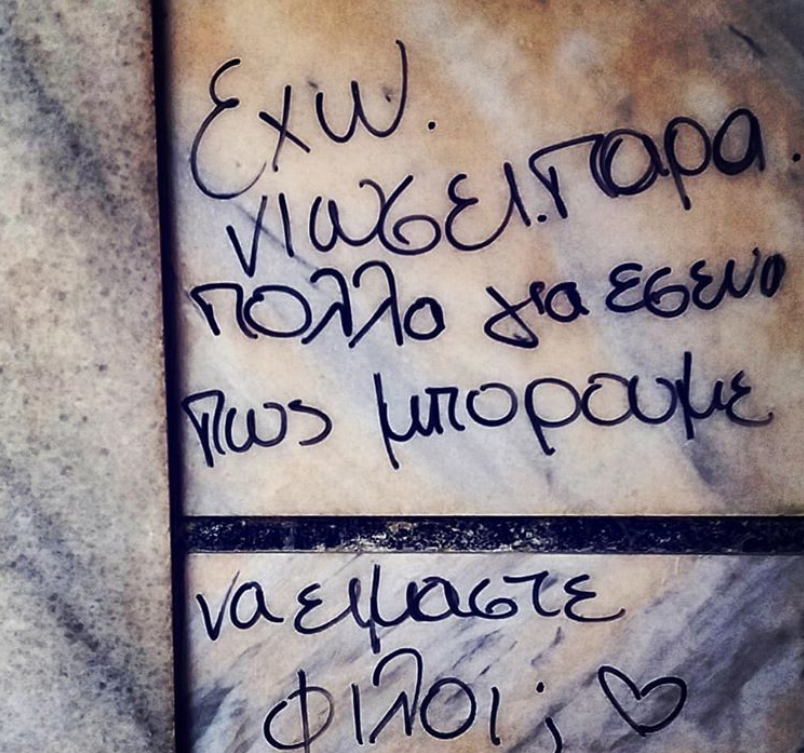 Εχω.
νιωσει.παρα.
πολλα για εσενα
πως μπορουμε
να ειμαστε
φιλοι; ♡